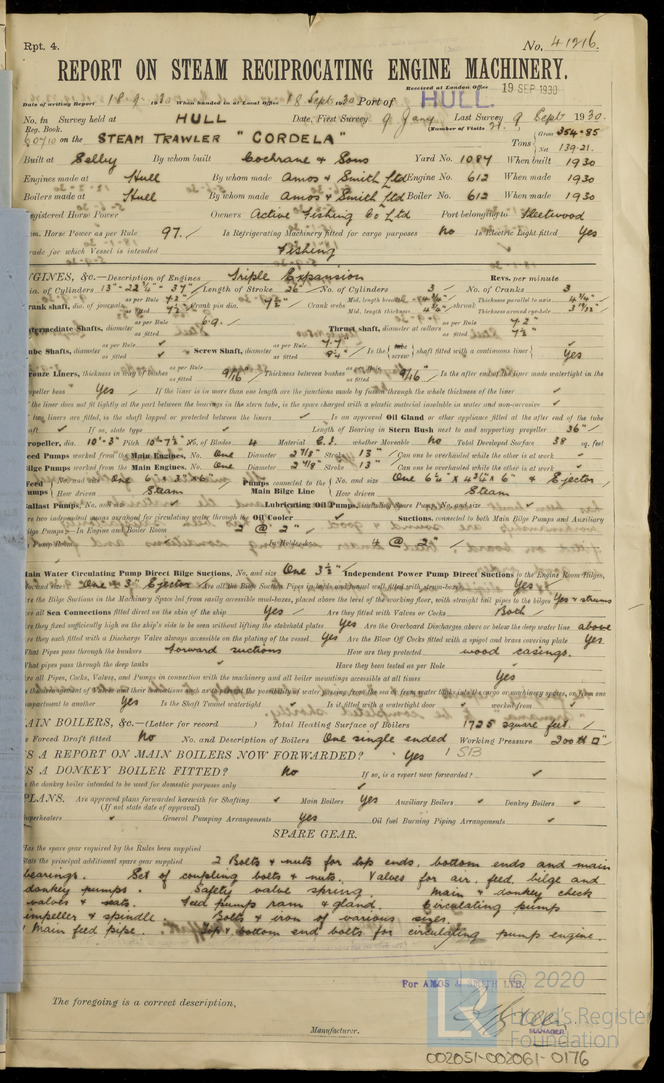 Rpt. 4. No. 41216.
REPORT ON STEAM RECIPROCATING ENGINE MACHINERY.
Received at London Office 19 SEP 1930
Date of writing Report 18.9.1930 When handed in at Local Office 18 Sept. 1930 Port of HULL.
No. in Survey held at HULL Date, First Survey 9 Jany Last Survey 9 Sept 1930.
Reg. Book. (Number of Visits
60710 on the STEAM TRAWLER "CORDELA" Tons Gross 354.85 Net 139.21.
Built at Selby By whom built Cochrane & Sons Yard No. 1087 When built 1930
Engines made at Hull By whom made Amos & Smith Ltd Engine No. 612 When made 1930
Boilers made at Hull By whom made Amos & Smith Ltd Boiler No. 612 When made 1930
Registered Horse Power Owners Active Fishing Co Ltd Port belonging to Fleetwood
Nom. Horse Power as per Rule 97. Is Refrigerating Machinery fitted for cargo purposes No Is Electric Light fitted Yes
Trade for which Vessel is intended Fishing
ENGINES, &c.—Description of Engines Triple Expansion Revs. per minute
Dia. of Cylinders 13"-22¼"-37" Length of Stroke 26" No. of Cylinders 3 No. of Cranks 3
Crank shaft, dia. of journals as per Rule 7.2" as fitted 7½" Crank pin dia. 7½" Crank webs Mid. length breadth Mid. length thickness 4¾" shrunk Thickness parallel to axis 4¾" Thickness around eye-hole
Intermediate Shafts, diameter as per Rule 6.9. as fitted Thrust shaft, diameter at collars as per Rule 7.2" as fitted 7½"
Tube Shafts, diameter as per Rule as fitted Screw Shaft, diameter as per Rule 7.7" as fitted 8¼" Is the tube screw shaft fitted with a continuous liner Yes
Bronze Liners, thickness in way of bushes as per Rule as fitted 9/16" Thickness between bushes as per Rule as fitted 9/16" Is the after end of the liner made watertight in the
propeller boss Yes If the liner is in more than one length are the junctions made by fusion through the whole thickness of the liner
If the liner does not fit tightly at the part between the bearings in the stern tube, is the space charged with a plastic material insoluble in water and non-corrosive
If two liners are fitted, is the shaft lapped or protected between the liners Is an approved Oil Gland or other appliance fitted at the after end of the tube
shaft If so, state type Length of Bearing in Stern Bush next to and supporting propeller 36"
Propeller, dia. 10'-3" Pitch 10'-7½" No. of Blades 4 Material C.I. whether Moveable No Total Developed Surface 38 sq. feet
Feed Pumps worked from the Main Engines, No. One Diameter 2⅞" Stroke 13" Can one be overhauled while the other is at work
Bilge Pumps worked from the Main Engines, No. One Diameter 2⅞" Stroke 13" Can one be overhauled while the other is at work
Feed Pumps No. and size One 6"x3"x6" How driven Steam Pumps connected to the Main Bilge Line No. and size One 6¼" x 4¾" x 6" & Ejector How driven Steam
Ballast Pumps, No. and size Lubricating Oil Pumps, including Spare Pump, No. and size
Are two independent means arranged for circulating water through the Oil Cooler Suctions, connected to both Main Bilge Pumps and Auxiliary
Bilge Pumps:—In Engine and Boiler Room 2 @ 2"
In Holds, &c. 4 @ 2"
Main Water Circulating Pump Direct Bilge Suctions, No. and size One 3½" Independent Power Pump Direct Suctions to the Engine Room Bilges,
No. and size One 3" Ejector Are all the Bilge Suction Pipes in holds and tunnel well fitted with strum-boxes Yes
Are the Bilge Suctions in the Machinery Space led from easily accessible mud-boxes, placed above the level of the working floor, with straight tail pipes to the bilges Yes & strums
Are all Sea Connections fitted direct on the skin of the ship Yes Are they fitted with Valves or Cocks Both
Are they fixed sufficiently high on the ship's side to be seen without lifting the stokehold plates Yes Are the Overboard Discharges above or below the deep water line above
Are they each fitted with a Discharge Valve always accessible on the plating of the vessel Yes Are the Blow Off Cocks fitted with a spigot and brass covering plate Yes
What Pipes pass through the bunkers Forward suctions How are they protected wood casings.
What pipes pass through the deep tanks Have they been tested as per Rule
Are all Pipes, Cocks, Valves, and Pumps in connection with the machinery and all boiler mountings accessible at all times Yes
Is the arrangement of Valves and their connections such as to prevent the possibility of water passing from the sea or from water tanks into the cargo or machinery spaces, or from one
compartment to another Yes Is the Shaft Tunnel watertight Is it fitted with a watertight door worked from
MAIN BOILERS, &c.—(Letter for record ) Total Heating Surface of Boilers 1725 square feet.
Is Forced Draft fitted No No. and Description of Boilers One single ended Working Pressure 200 lb □"
IS A REPORT ON MAIN BOILERS NOW FORWARDED? Yes 1 SB
IS A DONKEY BOILER FITTED? No If so, is a report now forwarded?
Is the donkey boiler intended to be used for domestic purposes only
PLANS. Are approved plans forwarded herewith for Shafting Main Boilers Yes Auxiliary Boilers Donkey Boilers
(If not state date of approval)
Superheaters General Pumping Arrangements Yes Oil fuel Burning Piping Arrangements
SPARE GEAR.
Has the spare gear required by the Rules been supplied
State the principal additional spare gear supplied 2 Bolts & nuts for top ends, bottom ends and main
bearings. Set of coupling bolts & nuts. Valves for air, feed, bilge and
donkey pumps. Safety valve spring. Main & donkey check
valves & seats. Feed pump ram & gland. Circulating pump
impeller & spindle. Bolts & iron of various sizes.
1 Main feed pipe. Top & bottom end bolts for circulating pump engine.
For AMOS & SMITH LTD.
The foregoing is a correct description,
MANAGER
Manufacturer.
© 2020
Lloyd's Register
Foundation
002051-002061-0176